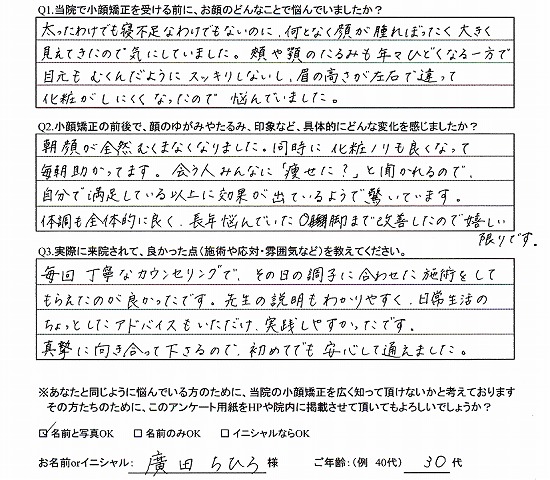 Q1.当院で小顔矯正を受ける前に、お顔のどんなことで悩んでいましたか?
太ったわけでも寝不足なわけでもないのに、何となく顔が腫れぼったく大きく
見えてきたので気にしていました。頬や顎のたるみも年々ひどくなる一方で
目元もむくんだようにスッキリしないし、眉の高さが左右で違って
化粧がしにくくなったので悩んでいました。
Q2.小顔矯正の前後で、顔のゆがみやたるみ、印象など、具体的にどんな変化を感じましたか?
朝顔が全然むくまなくなりました。同時に化粧ノリも良くなって
毎朝助かってます。会う人みんなに「痩せた?」と聞かれるので、
自分で満足している以上に効果が出ているようで驚いています。
体調も全体的に良く、長年悩んでいたO脚まで改善したので嬉しい
限りです。
Q3.実際に来院されて、良かった点(施術や応対・雰囲気など)を教えてください。
毎回丁寧なカウンセリングで、その日の調子に合わせた施術をして
もらえたのが良かったです。先生の説明もわかりやすく、日常生活の
ちょっとしたアドバイスもいただけ、実践しやすかったです。
真摯に向き合って下さるので、初めてでも安心して通えました。
※あなたと同じように悩んでいる方のために、当院の小顔矯正を広く知って頂けないかと考えております
その方たちのために、このアンケート用紙をHPや院内に掲載させて頂いてもよろしいでしょうか?
☑名前と写真OK □名前のみOK □イニシャルならOK
お名前orイニシャル: 廣田 ちひろ 様 ご年齢:(例 40代) 30 代